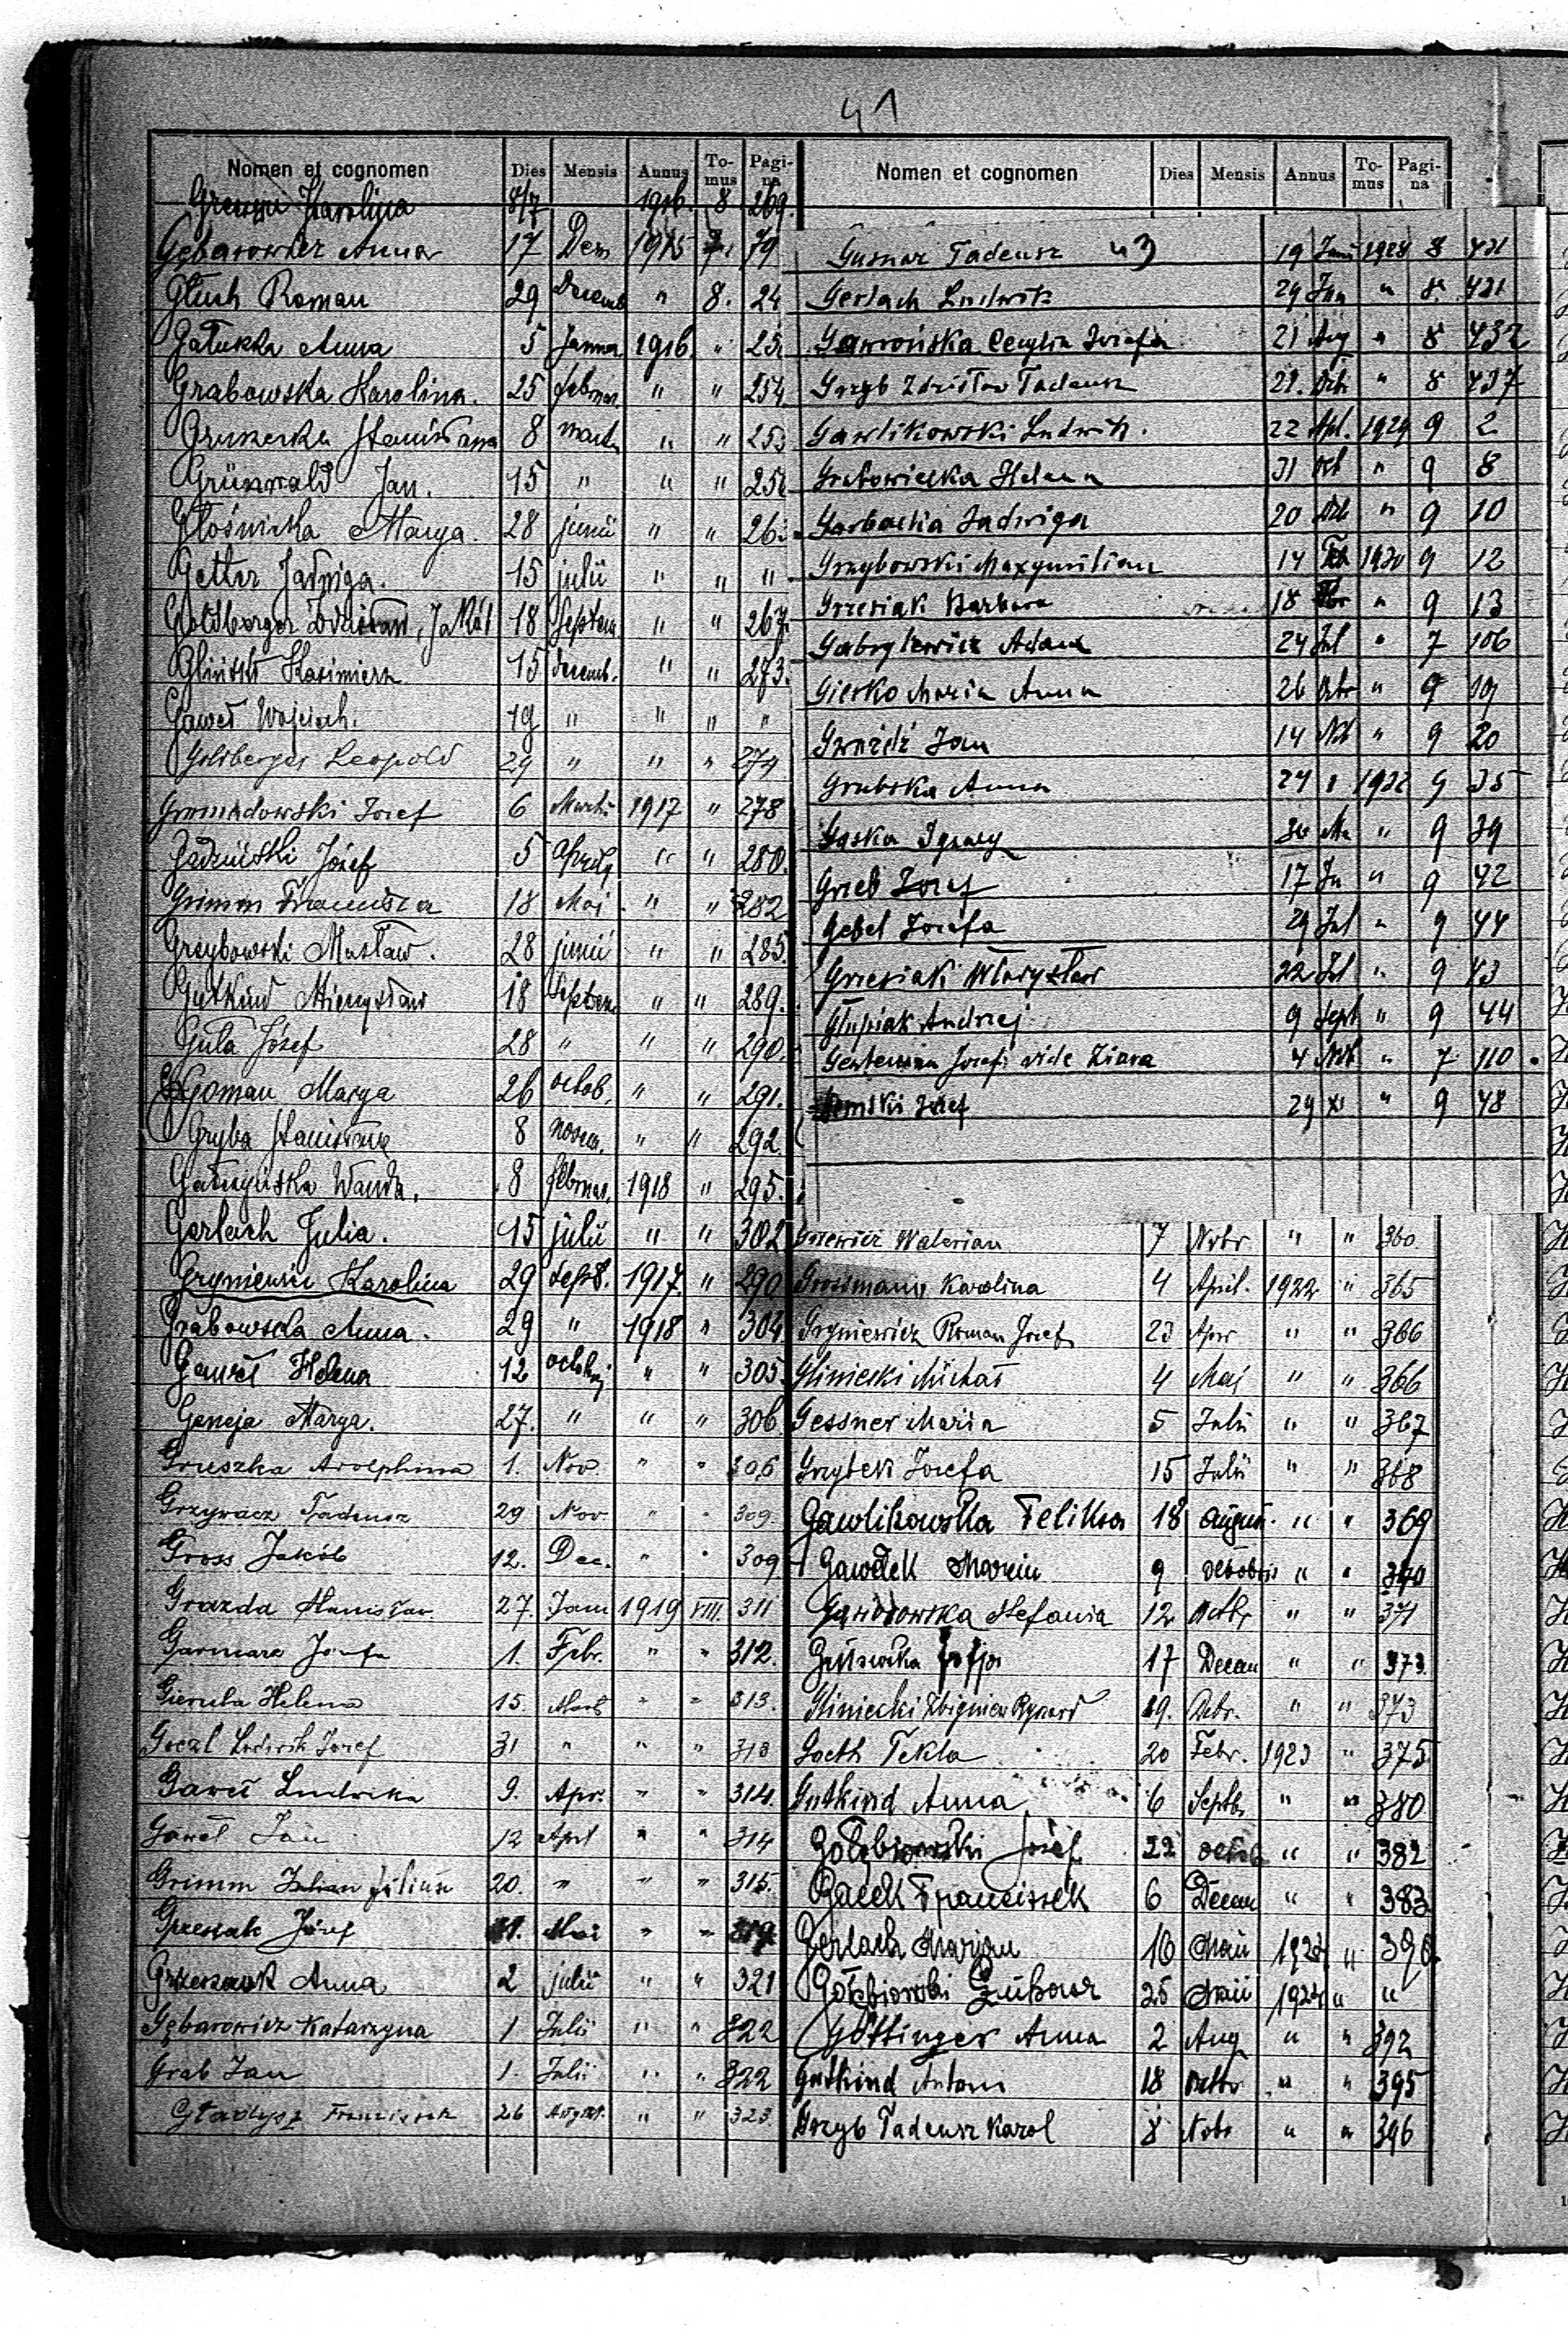 41
Nomen et cognomen Dies Mensis Annus To-mus Pagi-na
Karolina 8/7 1916. 8 269.
Gębarowicz Anna 17 Dem 1915 7. 79
Głuch Roman 29 Decemb " 8. 24
Gałuszka Anna 5 Januar 1916 " 25
Grabowska Karolina. 25 februar. " " 254
Stanisława 8 martii " " 25
Grünwald Jan. 15 " " " 25
Głośnicka Marya. 28 junii " " 26
Getter Jadwiga. 15 julii " " "
Goldberger Zdzisław, Jakób 18 Septem " " 267.
Gliński Kazimierz 15 decemb. " " 273.
Gaweł Wojciech. 19 " " " "
Goldberger Leopold 29 " " " 274
Gromadowski Josef 6 Martii 1917 " 278
Gadziński Józef 5 Aprilis " " 280.
Grimm Franciszka 18 Maj " " 282
Grzybowski Mustaw. 28 junii " " 285.
Gutkind Mieczysław 18 Septem " " 289.
Guła Józef 28 " " " 290.
Goman Marya 26 octob. " " 291.
Gryba Stanisława 8 novem. " " 292.
Gałczyńska Wanda. 8 februar. 1918 " 295.
Gerlach Julia. 15 julii " " 302
Gryniewicz Karolina 29 Sept. 1917. " 290
Grabowska Anna. 29 " 1918 " 304
Gaweł Helena 12 octobris " " 305.
Geneja Marya. 27. " " " 306
Gruszka Adolphina 1. Nov. " " 306
Grzywacz Tadeusz 29 Nov " " 309.
Gross Jakób 12. Dec. " " 309
Grazda Stanisław 27. Jan 1919 VIII. 311
Garncarz Josefa 1. Febr. " " 312.
Gierula Helena 15. Mart " " 313.
Goczl Ludwik Josef 31 " " " 313
Gaweł Ludwika 9. Apr. " " 314.
Gaweł Jan 12 April " " 314
Grimm Julian Julian 20. " " " 315.
Grzesiak Józef 11. Mai " " 319
Grzesiak Anna 2 julii " " 321
Gębarowicz Katarzyna 1 Julii " " 322
Grab Jan 1. Julii " " 322
Gładysz Franciszek 26 August. " " 323.
Nomen et cognomen Dies Mensis Annus To-mus Pagi-na
Gusnar Tadeusz 43 19 Juni 1928 8 421
Gerlach Ludwik 29 Jun " 8. 421
Gawrońska Cecylia Josefa 21 Aug " 8 432
Grzyb Zdzisław Tadeusz 22. Octr " 8 437
Gawlikowski Ludwik. 22 Apl. 1929 9 2
Grabowiecka Helena 31 Oct " 9 8
Garbacka Jadwiga 20 Dcb " 9 10
Grzybowski Maxymilian 14 Feb 1930 9 12
Grzesiak Barbara 18 " 9 13
Gabrylewicz Adam 24 Jul " 7 106
Giesko Maria Anna 26 Octr " 9 19
Gwoźdź Jan 14 Nb " 9 20
Grabska Anna 24 1 1932 9 35
Gąska Ignacy 30 Ma " 9 39
Grzeb Josef 17 Ju " 9 42
Gebel Josefa 29 Jul " 9 44
Grzesiak Władysław 22 Jul " 9 43
Głupiak Andrzej 9 Sept " 9 44
Gentelman Josefa vide Ziara 4 Nvb " 7 110
Josef 29 XI " 9 48
Gocewicz Walerian 7 Nvbr " " 360.
Grossmann Karolina 4 April. 1922 " 365
Gryniewicz Roman Josef 23 Apr " " 366
Gliniecki Michał 4 Maj " " 366
Gessner Maria 5 Julii " " 367
Grzybek Josefa 15 Julii " " 368
Gawlikowska Feliksa 18 August. " " 369
Gawełek Marcin 9 Octobris " " 370
Gąsiorowska Stefania 12 Octbr " " 371
Zofja 17 Decem " " 373.
Gliniecki Zbigniew Ryszard 29. Dcbr. " " 373
Goeth Tekla 20 Febr. 1923 " 375
Gutkind Anna 6 Septb. " " 380
Gołębiowski Józef 22 Octob " " 382
Gacek Franciszek 6 Decem " " 383
Gerlach Marian 10 Maii 1924 " 390
Gołębiowski 25 Maii 1924 " "
Göttinger Anna 2 Aug " " 392
Gutkind Antoni 18 Octbr " " 395
Grzyb Tadeusz Karol 8 Nvbr " " 396